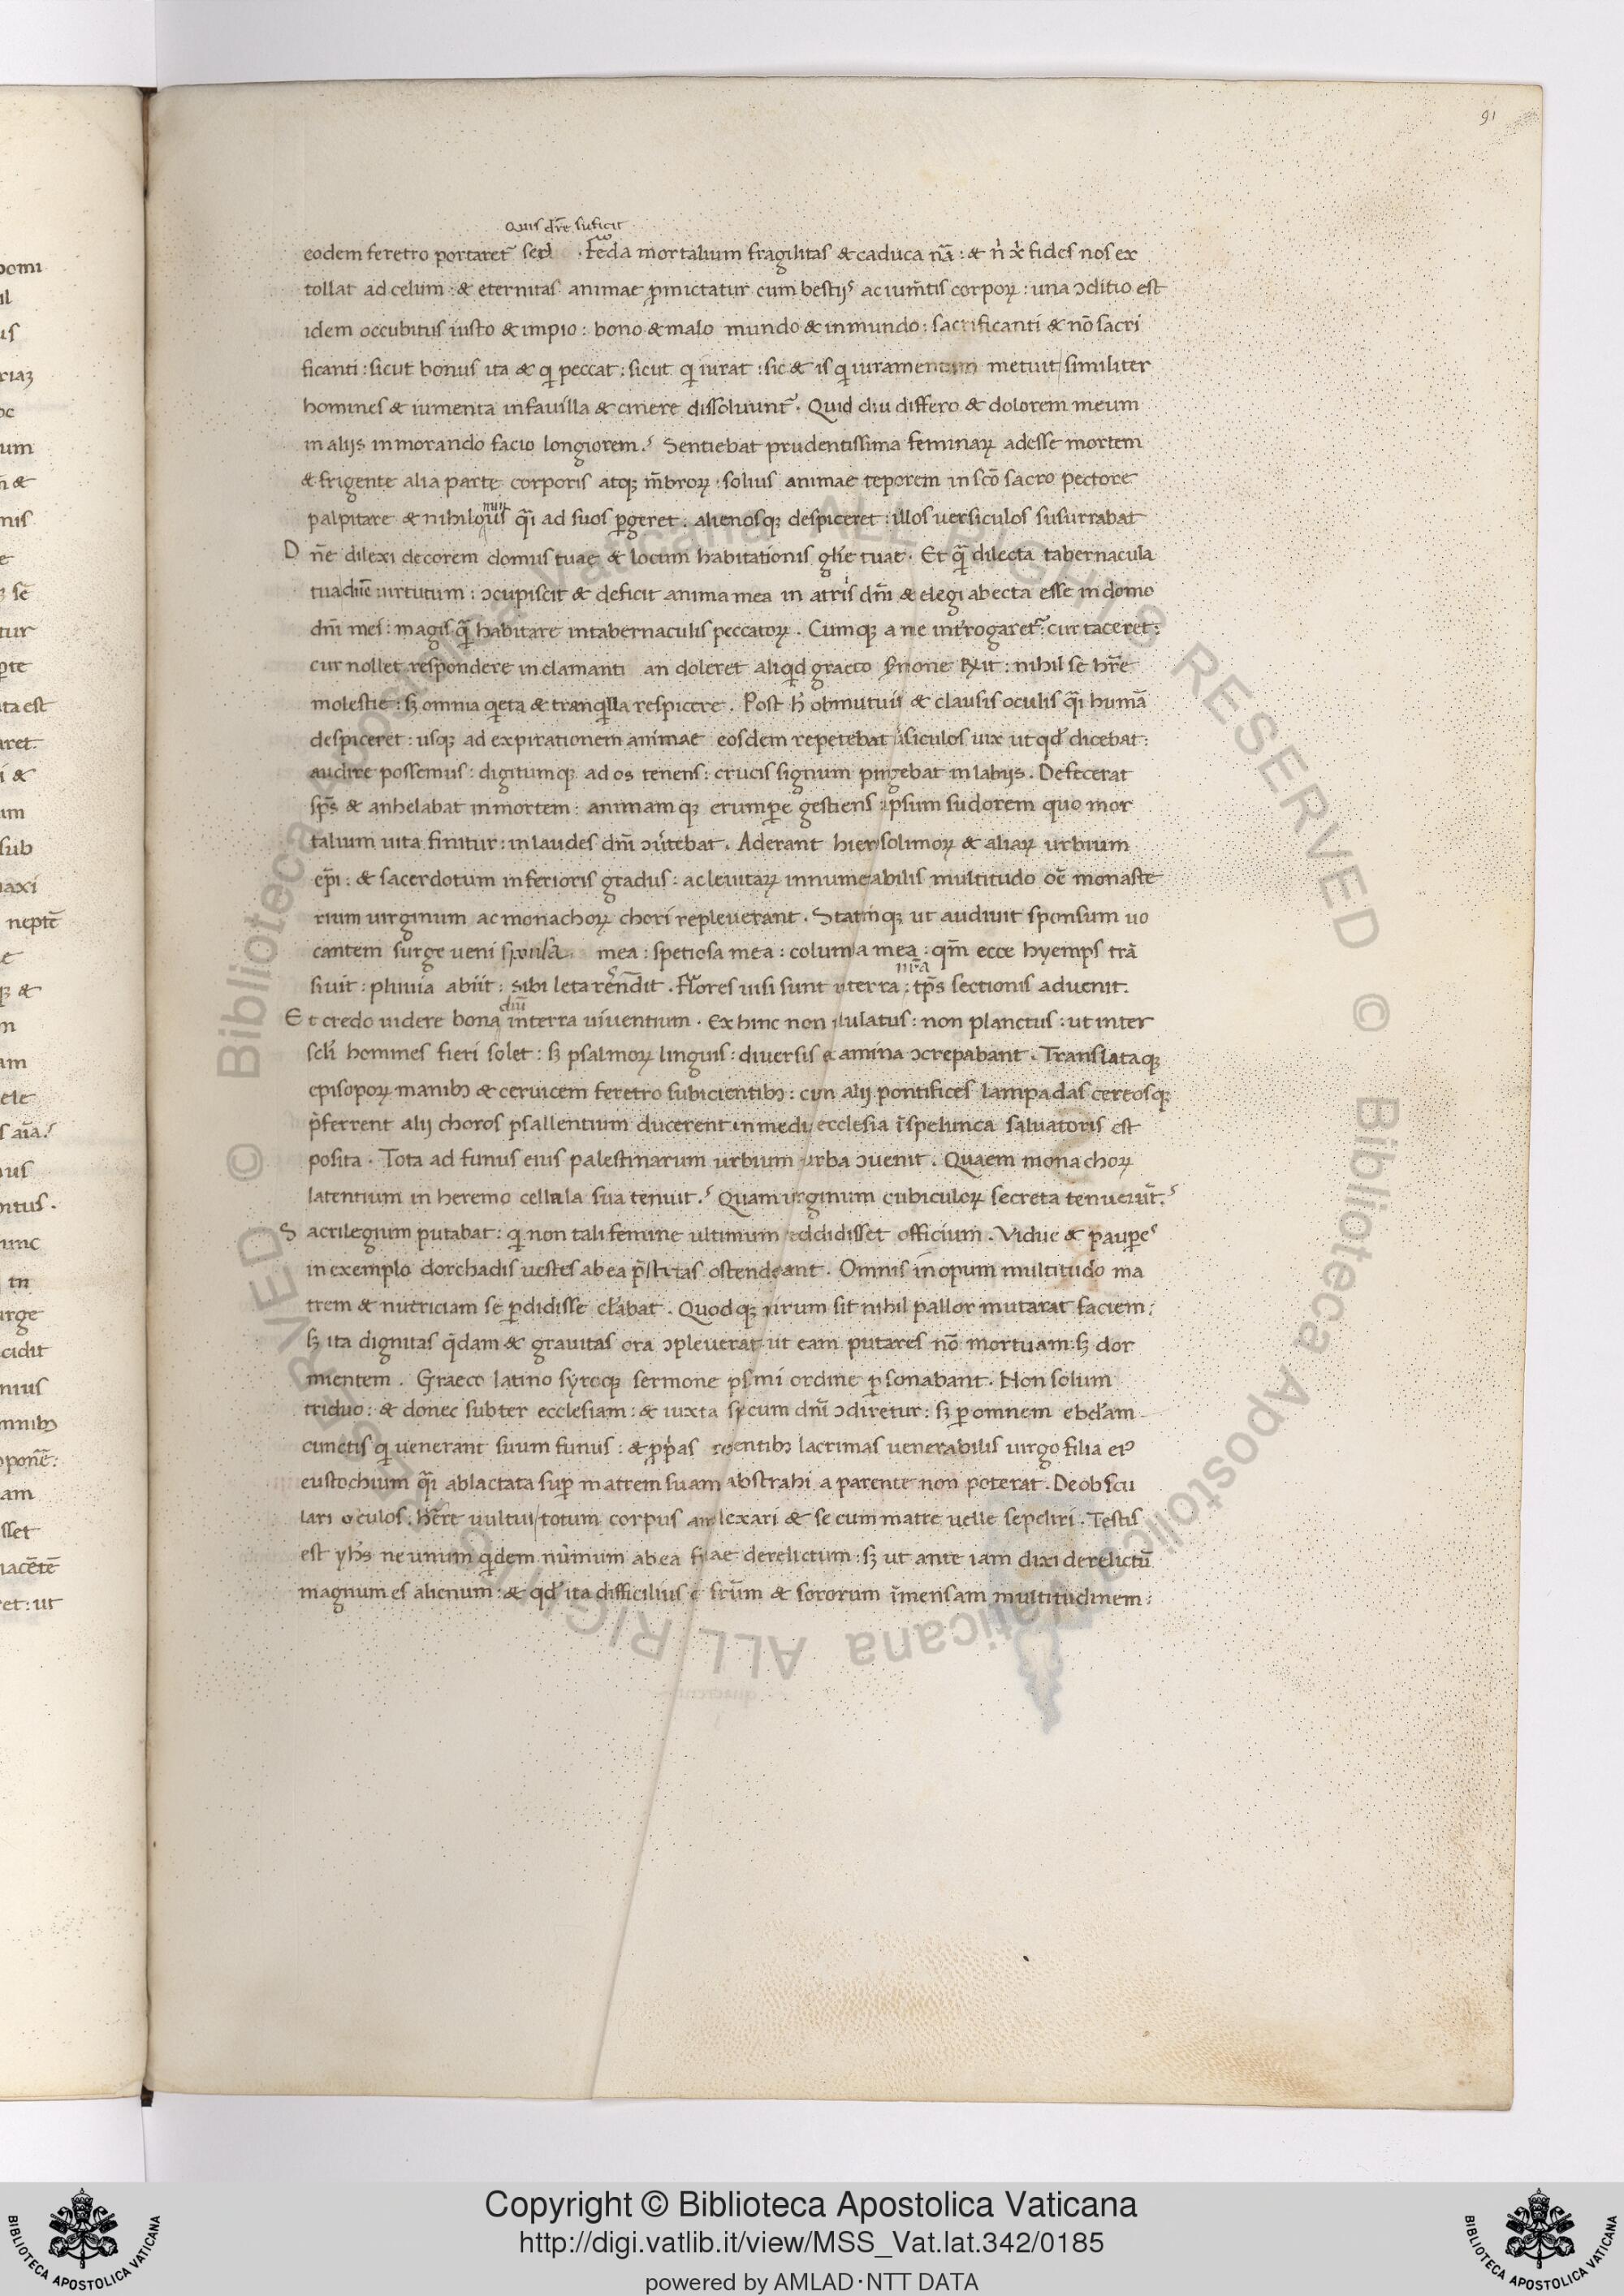 91
Quis dr̄e suficit
eodem feretro portaret᷑ sed . feda mortalium fragilitas & caduca nā : & n̓ x̓ fides nos ex
tollat ad celum : & eternitas animae ꝓmictatur cum bestijs ac ium̄tis corporꝝ : una ɔditio est
idem occubitus iusto & impio : bono & malo mundo & inmundo : sacrificanti & nō sacri
ficanti : sicut bonus ita & qi peccat : sicut qi iurat : sic & is qi iuramentum metuit | similiter
homines & iumenta in fauilla & cinere dissoluunt᷑ . Quid diu differo & dolorem meum
in alijs inmorando facio longiorem . Sentiebat prudentissima feminaꝝ adesse mortem
& frigente alia parte corporis atqꝫ m̄broꝝ : solius animae teporem in scō sacro pectore
min
palpitare & nihilous qāi ad suos ꝑgeret . alienosqꝫ despiceret : illos uersiculos susurrabat
D n̄e dilexi decorem domus tuae & locum habitationis glīe tuae . Et qā dilecta tabernacula
tua dn̄e uirtutum : ɔcupiscit & deficit anima mea in atris dn̄i & elegi abecta esse in domo
dn̄i mei : magis qā habitare in tabernaculis peccatoꝝ . Cumqꝫ a me int̓rogaret᷑ : cur taceret :
cur nollet respondere inclamanti an doleret aliqid graeco s̓mone R̄it : nihil se hr̄e
molestie : sꝫ omnia qieta & tranqilla respicere . Post h̓ obmutuit & clausis oculis qāi humā
despiceret : usqꝫ ad expirationem animae eosdem repetebat u̓siculos uix ut qd̓ dicebat :
audire possemus : digitumqꝫ ad os tenens : crucis signum pingebat in labijs . Defecerat
sp̄s & anhelabat in mortem : animamqꝫ erumpe̓ gestiens ipsum sudorem quo mor
talium uita finitur : in laudes dn̄i ɔu̓tebat . Aderant hiersolimoꝝ & aliaꝝ urbium
ep̄i : & sacerdotum inferioris gradus : ac leuitaꝝ innumeabilis multitudo oē monaste
rium uirginum ac monachoꝝ chori repleuerant . Statimqꝫ ut audiuit sponsum uo
cantem surge ueni sponsa mea : spetiosa mea : columa mea : qm̄ ecce hyemps trā
nr̄a
siuit : pluuia abiit : sibi leta rēndit . Flores uisi sunt i terra : tp̄s sectionis aduenit .
dn̄i
E t credo uidere bona in terra uiuentium . Ex hinc non ululatus : non planctus : ut inter
scl̄i homines fieri solet : sꝫ psalmoꝝ linguis : diuersis examina ɔcrepabant . Translataqꝫ
episopoꝝ manibꝫ & ceruicem feretro subicientibꝫ : cum alij pontifices lampadas cereosqꝫ
p̓ferrent alij choros psallentium ducerent in media ecclesia ī spelunca saluatoris est
posita . Tota ad funus eius palestinarum urbium turba ɔuenit . Quaem monachoꝝ
latentium in heremo cellula sua tenuit . Quam uirginum cubiculoꝝ secreta tenuerūt .
S acrilegium putabat : qi non tali femine ultimum reddidisset officium . Vidue & paupe̓s
in exemplo dorchadis uestes ab ea p̄stitas ostendeant . Omnis inopum multitudo ma
trem & nutriciam se ꝑdidisse cl̄abat . Quodqꝫ mirum sit nihil pallor mutarat faciem :
sꝫ ita dignitas qdam & grauitas ora ɔpleuerat ut eam putares nō mortuam sꝫ dor
mientem . Graeco latino syroqꝫ sermone psl̄mi ordine ꝑsonabant . Non solum
triduo : & donec subter ecclesiam : & iuxta specum dn̄i ɔdiretur : sꝫ ꝑ omnem ebd̓am
cunctis qi uenerant suum funus : & ꝓp̓as credentibꝫ lacrimas uenerabilis uirgo filia eiꝰ
eustochium qāi ablactata suꝑ matrem suam abstrahi a parente non poterat . Deobscu
lari oculos : her̄e uultui | totum corpus amlexari & se cum matre uelle sepeliri . Testis
est yhs̄ ne unum qidem nūmum ab ea filiae derelictum : sꝫ ut ante iam dixi derelictū
magnum es alienum : & qd̓ ita difficilius ē fr̄um & sororum īmensam multitudinem :
Copyright © Biblioteca Apostolica Vaticana
http://digi.vatlib.it/view/MSS_Vat.lat.342/0185
powered by AMLAD·NTT DATA
BIBLIOTECA APOSTOLICA VATICANA
BIBLIOTECA APOSTOLICA VATICANA
© Biblioteca Apostolica Vaticana ALL RIGHTS RESERVED
© Biblioteca Apostolica Vaticana ALL RIGHTS RESERVED